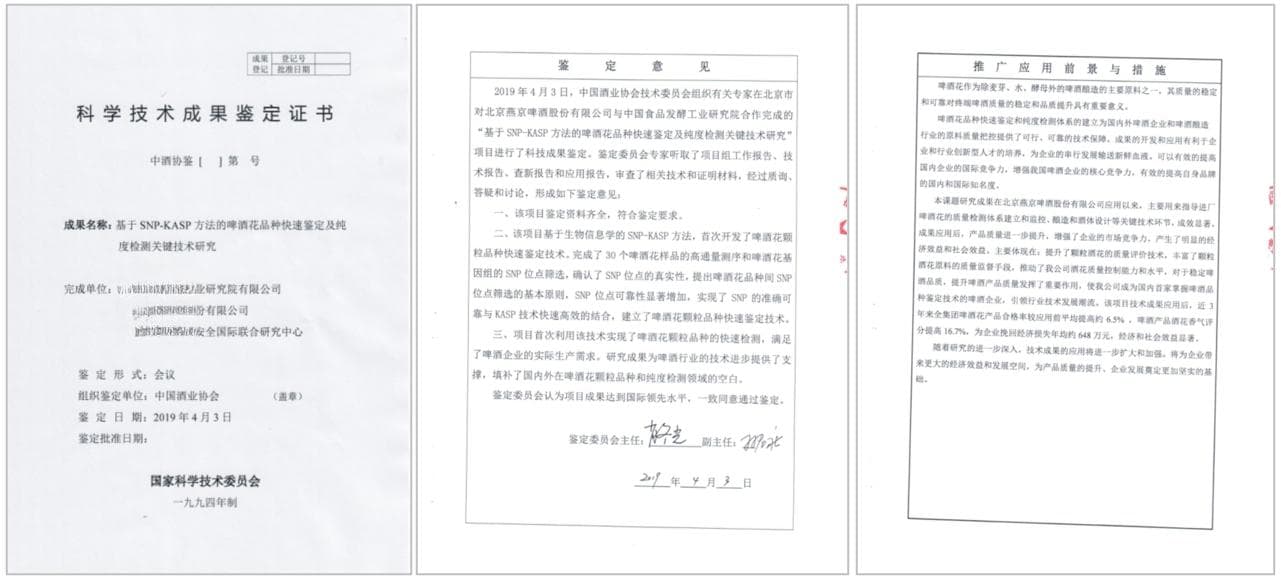 成果 登记号
登记 批准日期
科学技术成果鉴定证书
中酒协鉴 [ ] 第 号
成果名称：基于 SNP-KASP 方法的啤酒花品种快速鉴定及纯
度检测关键技术研究
完成单位：业研究院有限公司
份有限公司
安全国际联合研究中心
鉴 定 形 式：会议
组织鉴定单位：中国酒业协会 （盖章）
鉴 定 日 期：2019 年 4 月 3 日
鉴定批准日期：
国家科学技术委员会
一九九四年制
鉴 定 意 见
2019 年 4 月 3 日，中国酒业协会技术委员会组织有关专家在北京市
对北京燕京啤酒股份有限公司与中国食品发酵工业研究院合作完成的
“基于 SNP-KASP 方法的啤酒花品种快速鉴定及纯度检测关键技术研究”
项目进行了科技成果鉴定。鉴定委员会专家听取了项目组工作报告、技
术报告、查新报告和应用报告，审查了相关技术和证明材料，经过质询、
答疑和讨论，形成如下鉴定意见：
一、该项目鉴定资料齐全，符合鉴定要求。
二、该项目基于生物信息学的 SNP-KASP 方法，首次开发了啤酒花颗
粒品种快速鉴定技术。完成了 30 个啤酒花样品的高通量测序和啤酒花基
因组的 SNP 位点筛选，确认了 SNP 位点的真实性，提出啤酒花品种间 SNP
位点筛选的基本原则，SNP 位点可靠性显著增加，实现了 SNP 的准确可
靠与 KASP 技术快速高效的结合，建立了啤酒花颗粒品种快速鉴定技术。
三、项目首次利用该技术实现了啤酒花颗粒品种的快速检测，满足
了啤酒企业的实际生产需求。研究成果为啤酒行业的技术进步提供了支
撑，填补了国内外在啤酒花颗粒品种和纯度检测领域的空白。
鉴定委员会认为项目成果达到国际领先水平，一致同意通过鉴定。
鉴定委员会主任： 副主任：
2019 年 4 月 3 日
推广应用前景与措施
啤酒花作为除麦芽、水、酵母外的啤酒酿造的主要原料之一，其质量的稳定
和可靠对终端啤酒质量的稳定和品质提升具有重要意义。
啤酒花品种快速鉴定和纯度检测体系的建立为国内外啤酒企业和啤酒酿造
行业的原料质量把控提供了可行、可靠的技术保障。成果的开发和应用有利于企
业和行业创新型人才的培养，为企业的串行发展输送新鲜血液，可以有效的提高
国内企业的国际竞争力，增强我国啤酒企业的核心竞争力，有效的提高自身品牌
的国内和国际知名度。
本课题研究成果在北京燕京啤酒股份有限公司应用以来，主要用来指导进厂
啤酒花的质量检测体系建立和监控、酿造和酒体设计等关键技术环节，成效显著。
成果应用后，产品质量进一步提升，增强了企业的市场竞争力，产生了明显的经
济效益和社会效益。主要体现在：提升了颗粒酒花的质量评价技术，丰富了颗粒
酒花原料的质量监督手段，推动了我公司酒花质量控制能力和水平，对于稳定啤
酒品质、提升啤酒产品质量发挥了重要作用，使我公司成为国内首家掌握啤酒品
种鉴定技术的啤酒企业，引领行业技术发展潮流。该项目技术成果应用后，近 3
年来全集团啤酒花产品合格率较应用前平均提高约 6.5%，啤酒产品酒花香气评
分提高 16.7%，为企业挽回经济损失年均约 648 万元，经济和社会效益显著。
随着研究的进一步深入，技术成果的应用将进一步扩大和加强。将为企业带
来更大的经济效益和发展空间，为产品质量的提升、企业发展奠定更加坚实的基
础。